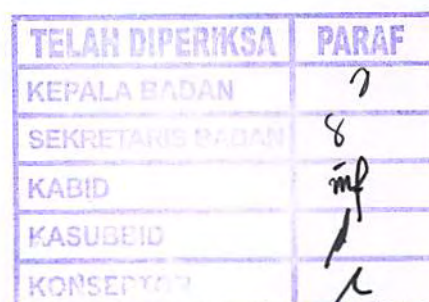 TELAH DIPERIKSA PARAF
KEPALA BADAN
SEKRETARIS BADAN
KABID
KASUBBID
KONSEPTOR